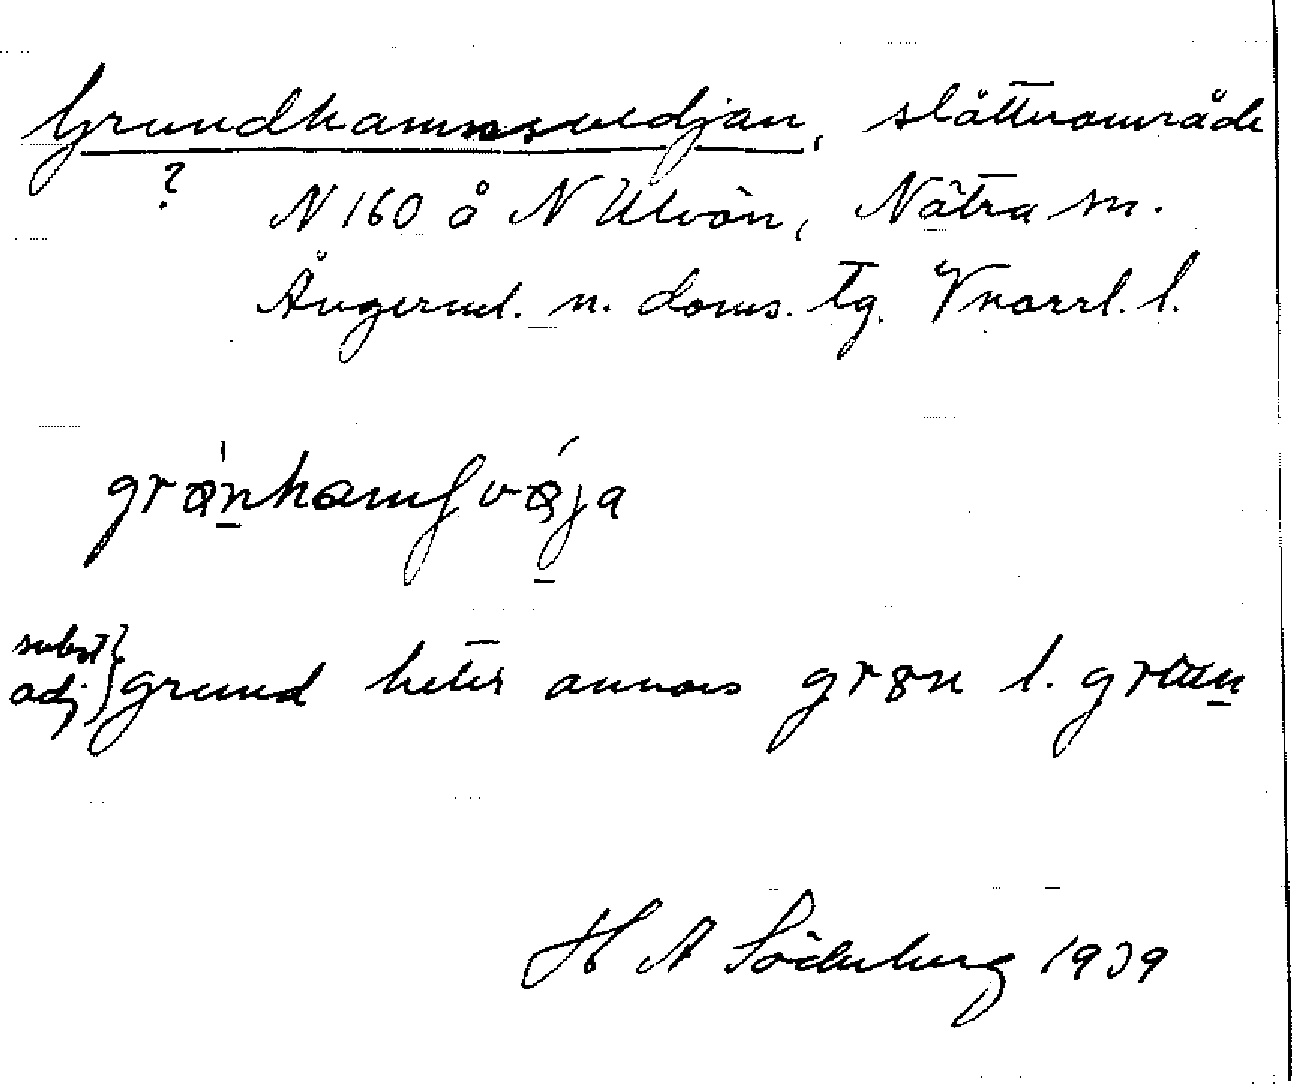 Grundhamnsvedjan, slåtterområde
?
N 160 å N Ulvön, Nätra sn.
Ångerml. n. doms. tg. Vnorrl. l.
subst
adj } grund heter annars grøn l.
H A Söderberg 1939